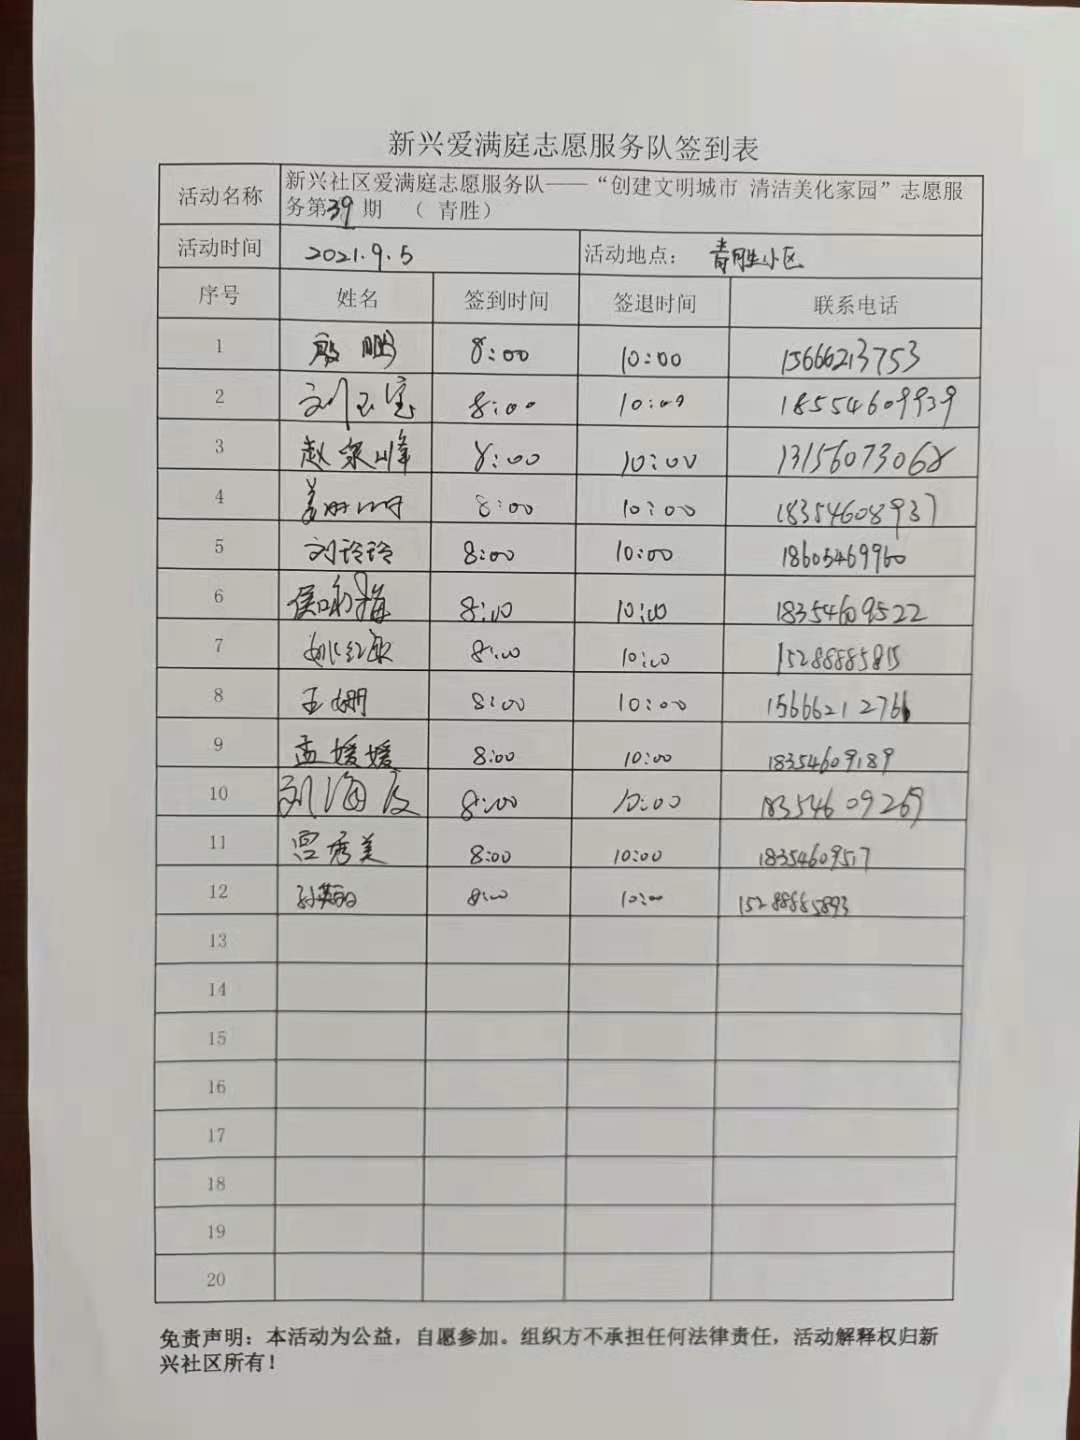 新兴爱满庭志愿服务队签到表
活动名称 新兴社区爱满庭志愿服务队——“创建文明城市 清洁美化家园”志愿服
务第39期 （ 青胜）
活动时间 2021.9.5 活动地点： 青胜小区
序号 姓名 签到时间 签退时间 联系电话
1 殷鹏 8:00 10:00 15666213753
2 刘玉宝 8:00 10:00 18554609939
3 赵泉峰 8:00 10:00 13156073068
4 姜 8:00 10:00 18354608937
5 刘玲玲 8:00 10:00 18605469960
6 侯咏梅 8:00 10:00 18354609522
7 姚红敏 8:00 10:00 15288885815
8 王姗 8:00 10:00 15666212766
9 孟媛媛 8:00 10:00 18354609189
10 刘海友 8:00 10:00 18354609269
11 宫秀美 8:00 10:00 18354609517
12 孙 8:00 10:00 15288885893
13
14
15
16
17
18
19
20
免责声明：本活动为公益，自愿参加。组织方不承担任何法律责任，活动解释权归新
兴社区所有！